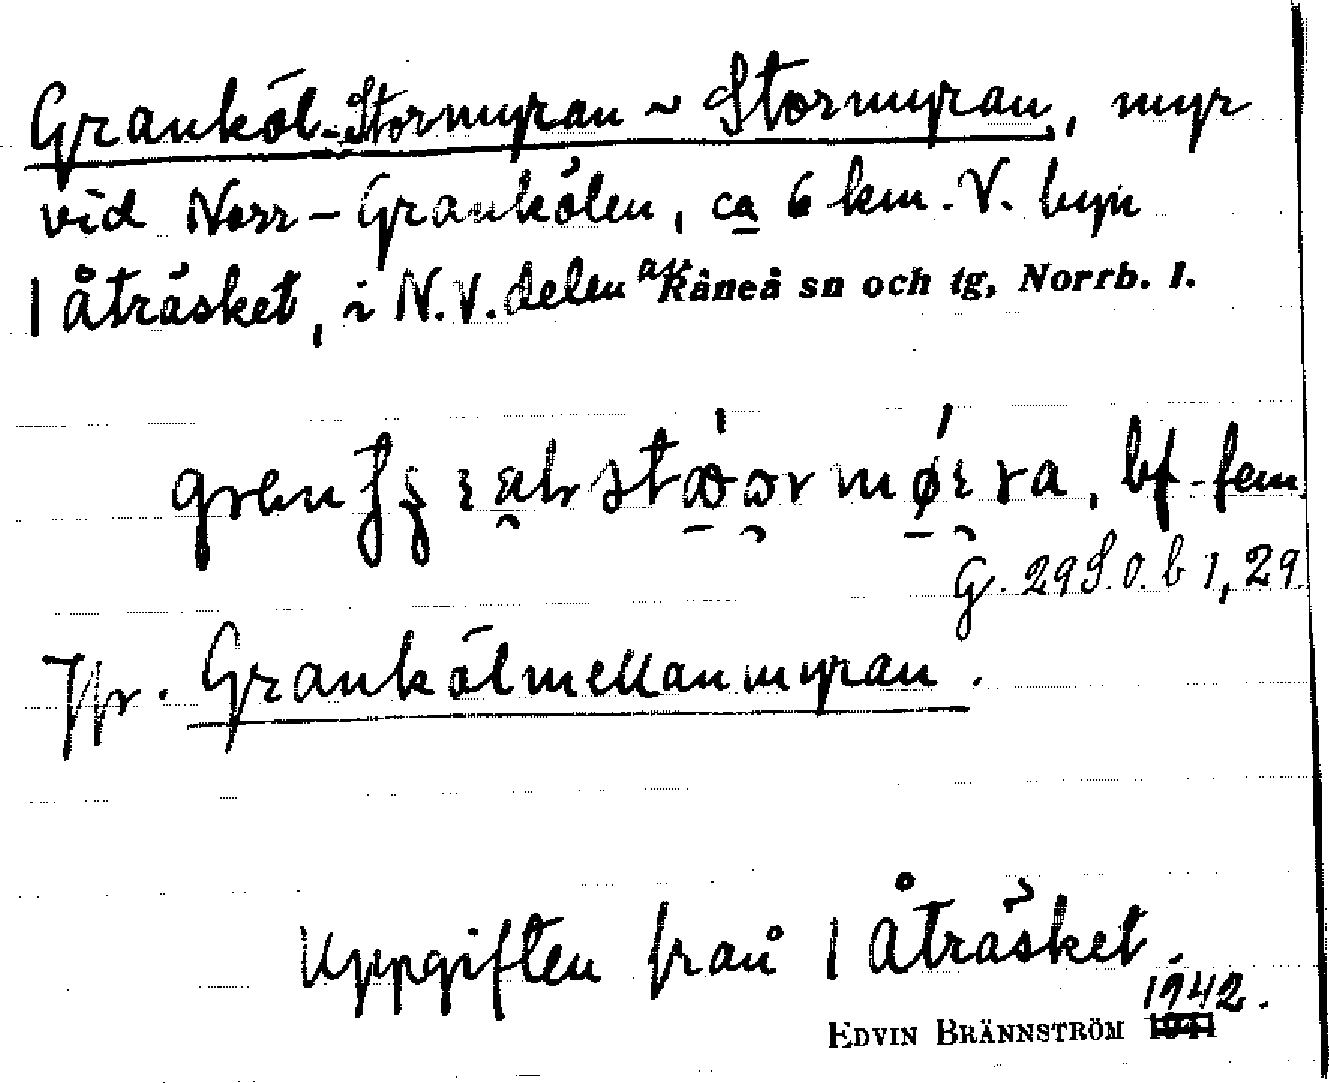 Granköl-Stormyran ~ Stormyran, myr
vid Norr-Grankölen, ca 6 km. V. byn
1 Åträsket, i N.V. delen av Råneå sn och tg, Norrb. l.
bf. fem.
G. 29 S.o.b 1, 29
Jfr. Grankölmellanmyran.
Uppgiften från 1 Åträsket.
1942.
EDVIN BRÄNNSTRÖM